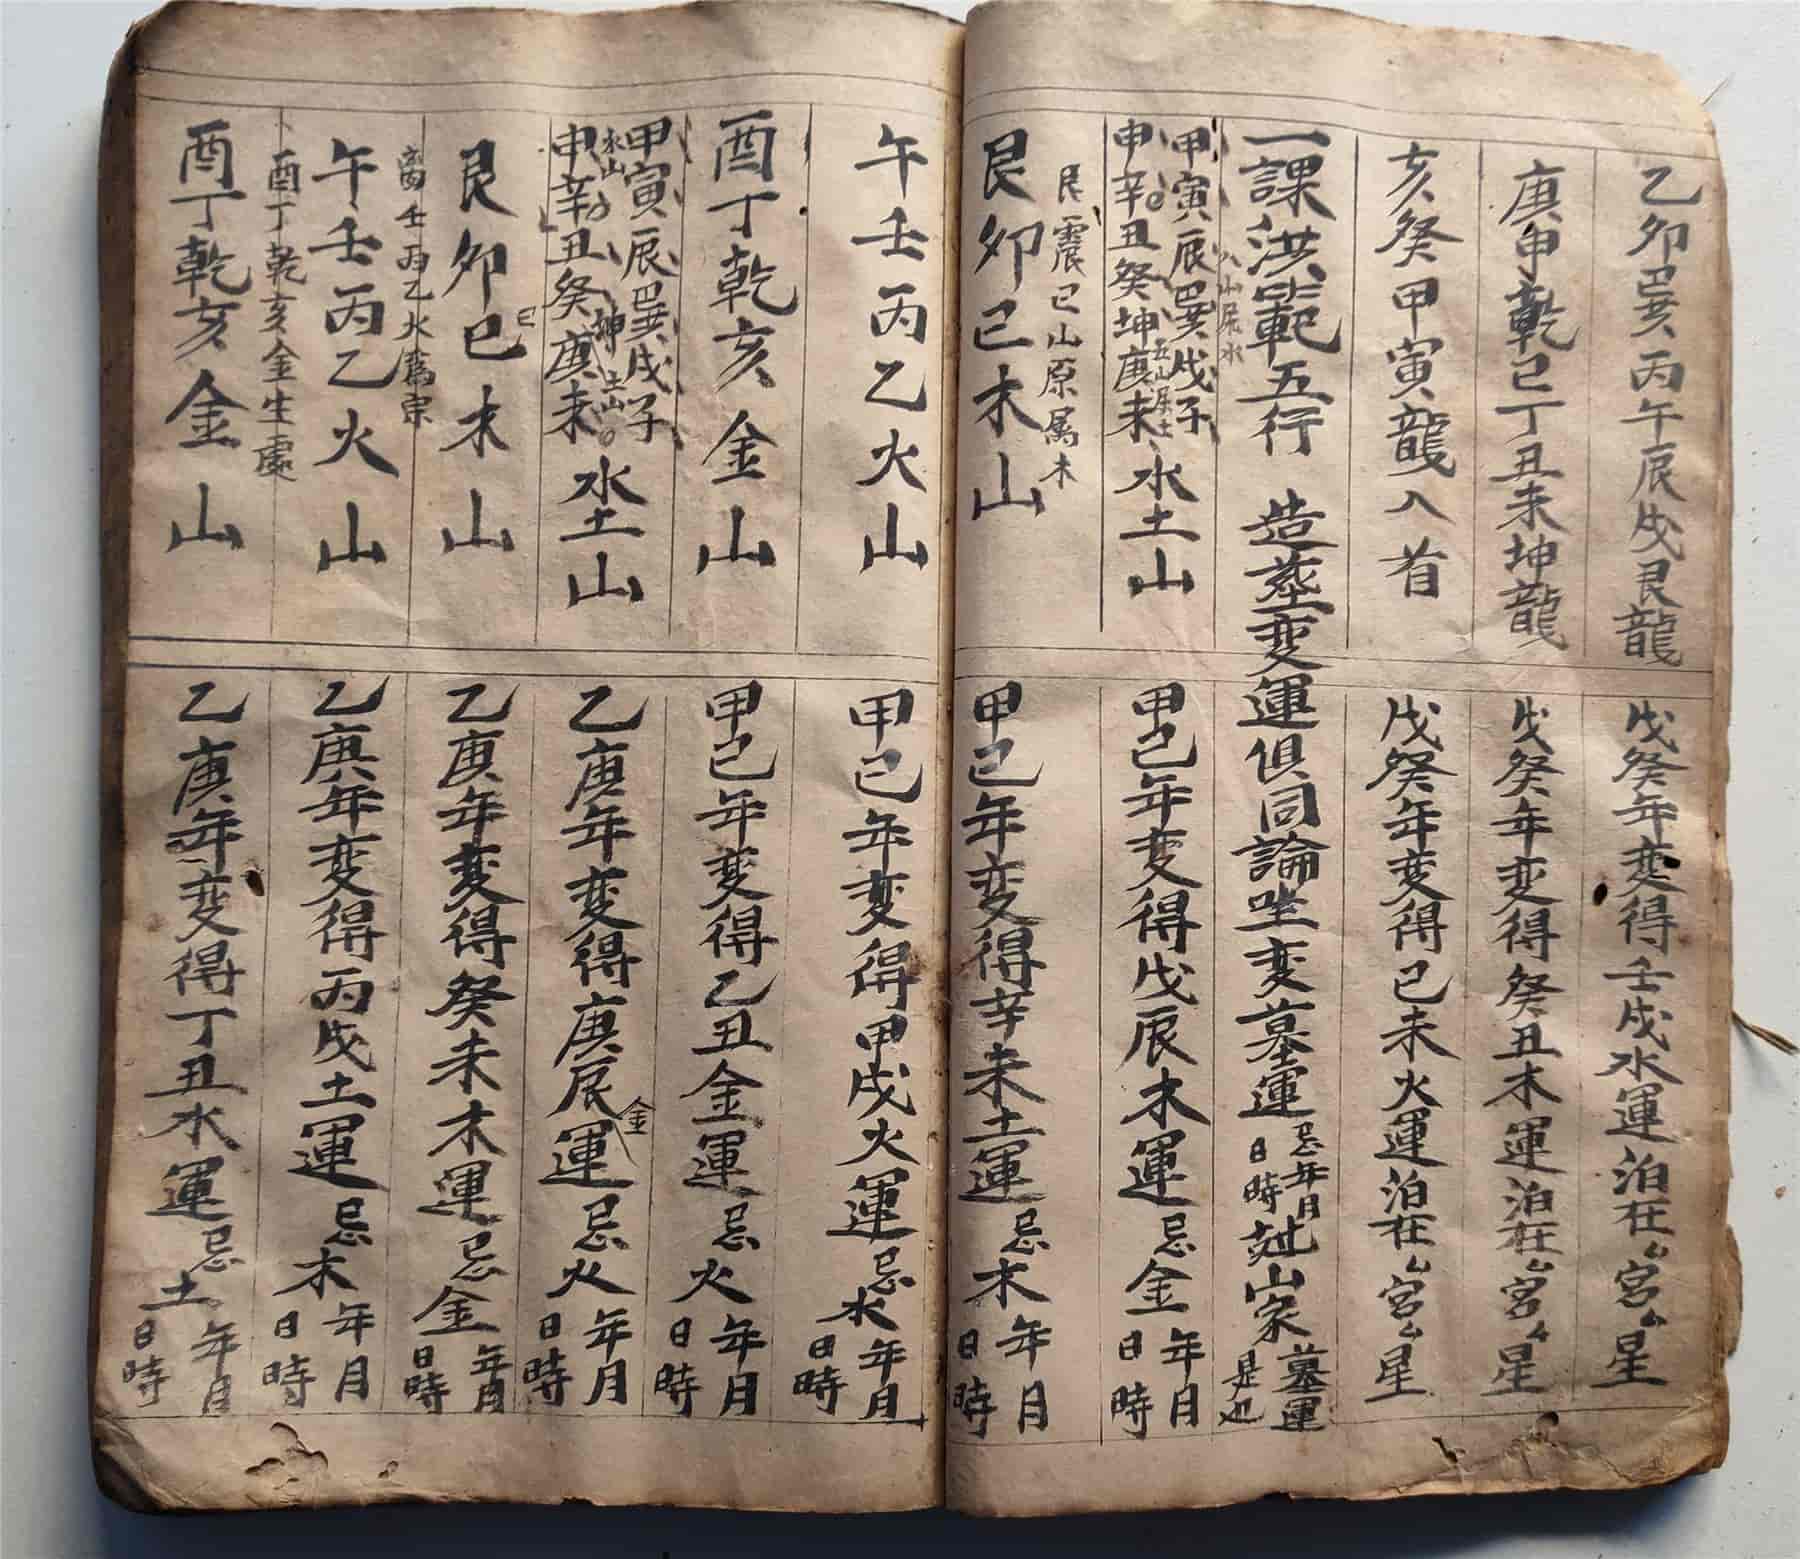 乙卯巽亥丙午辰戌艮龍
戊癸年变得壬戌水運泊在宮星
庚申乾巳丁丑未坤龍
戊癸年变得癸丑木運泊在宮星
亥癸甲寅龍入首
戊癸年变得己未火運泊在宮星
一課洪範五行 造塟变運俱同論坐变墓運
忌年月
日時
山家
墓運
是也
八山屎水
甲寅辰巽戌子
申辛丑癸坤庚未
五山屎土
水土山
甲己年变得戊辰木運忌金年月
日時
艮震巳山原属木
艮卯巳木山
甲己年变得辛未土運忌木年月
日時
午壬丙乙火山
甲己年变得甲戌火運忌水年月
日時
酉丁乾亥金山
甲己年变得乙丑金運忌火年月
日時
甲寅辰巽戌子
水山
申辛丑癸庚未
坤土山
水土山
乙庚年变得庚辰金運忌火年月
日時
艮卯巳木山
巳
乙庚年变得癸未木運忌金年月
日時
离壬丙乙火爲宗
午壬丙乙火山
乙庚年变得丙戌土運忌木年月
日時
酉丁乾亥金生處
酉丁乾亥金山
乙庚年变得丁丑水運忌土年月
日時